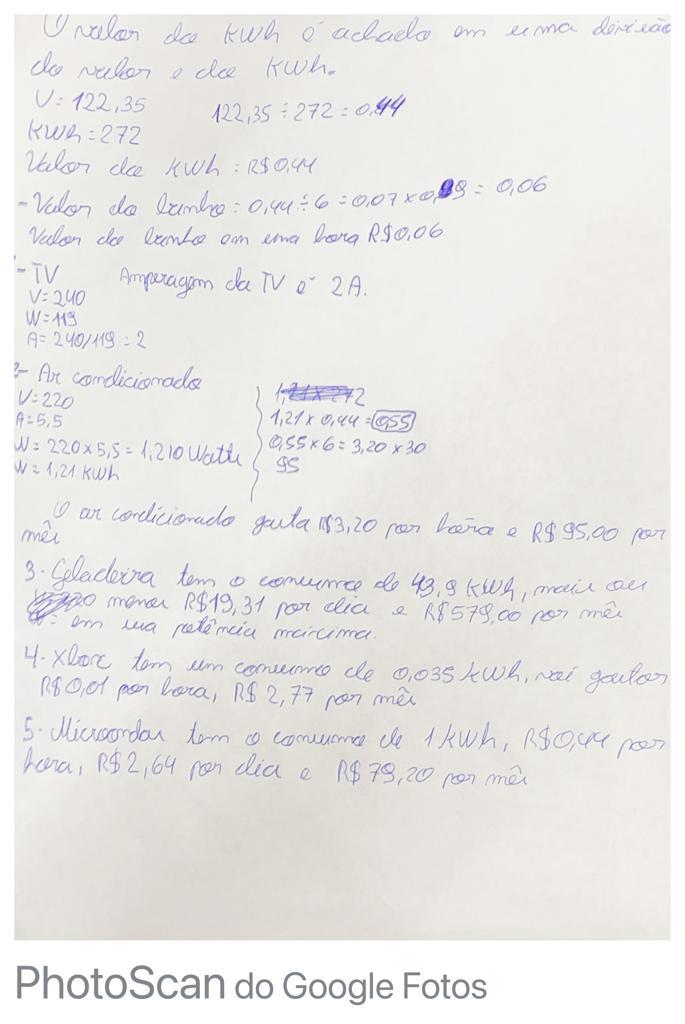 O valor do KWh é achado em uma divisão
do valor e do KWh.
V: 122,35 122,35 ÷ 272 = 0,44
KWh = 272
Valor do KWh : R$0,44
- Valor do banho = 0,44 ÷ 6 = 0,07 x 0,99 = 0,06
Valor do banho em uma hora R$0,06
- TV Amperagem da TV é 2A.
V= 240
W= 119
A= 240/119 = 2
2- Ar condicionado
V= 220 1,21 x 0,44 = 0,55
A= 5,5 0,55 x 6 = 3,20 x 30
W= 220 x 5,5 = 1,210 Watts 95
W= 1,21 KWh
O ar condicionado gasta R$3,20 por hora e R$95,00 por
mês
3- Geladeira tem o consumo de 43,9 KWh, mais ou
menos R$19,31 por dia e R$579,00 por mês
em sua potência máxima.
4- Xbox tem um consumo de 0,035 KWh, vai gastar
R$0,01 por hora, R$ 2,77 por mês
5- Microondas tem o consumo de 1 KWh, R$0,44 por
hora, R$ 2,64 por dia e R$ 79,20 por mês
PhotoScan do Google Fotos